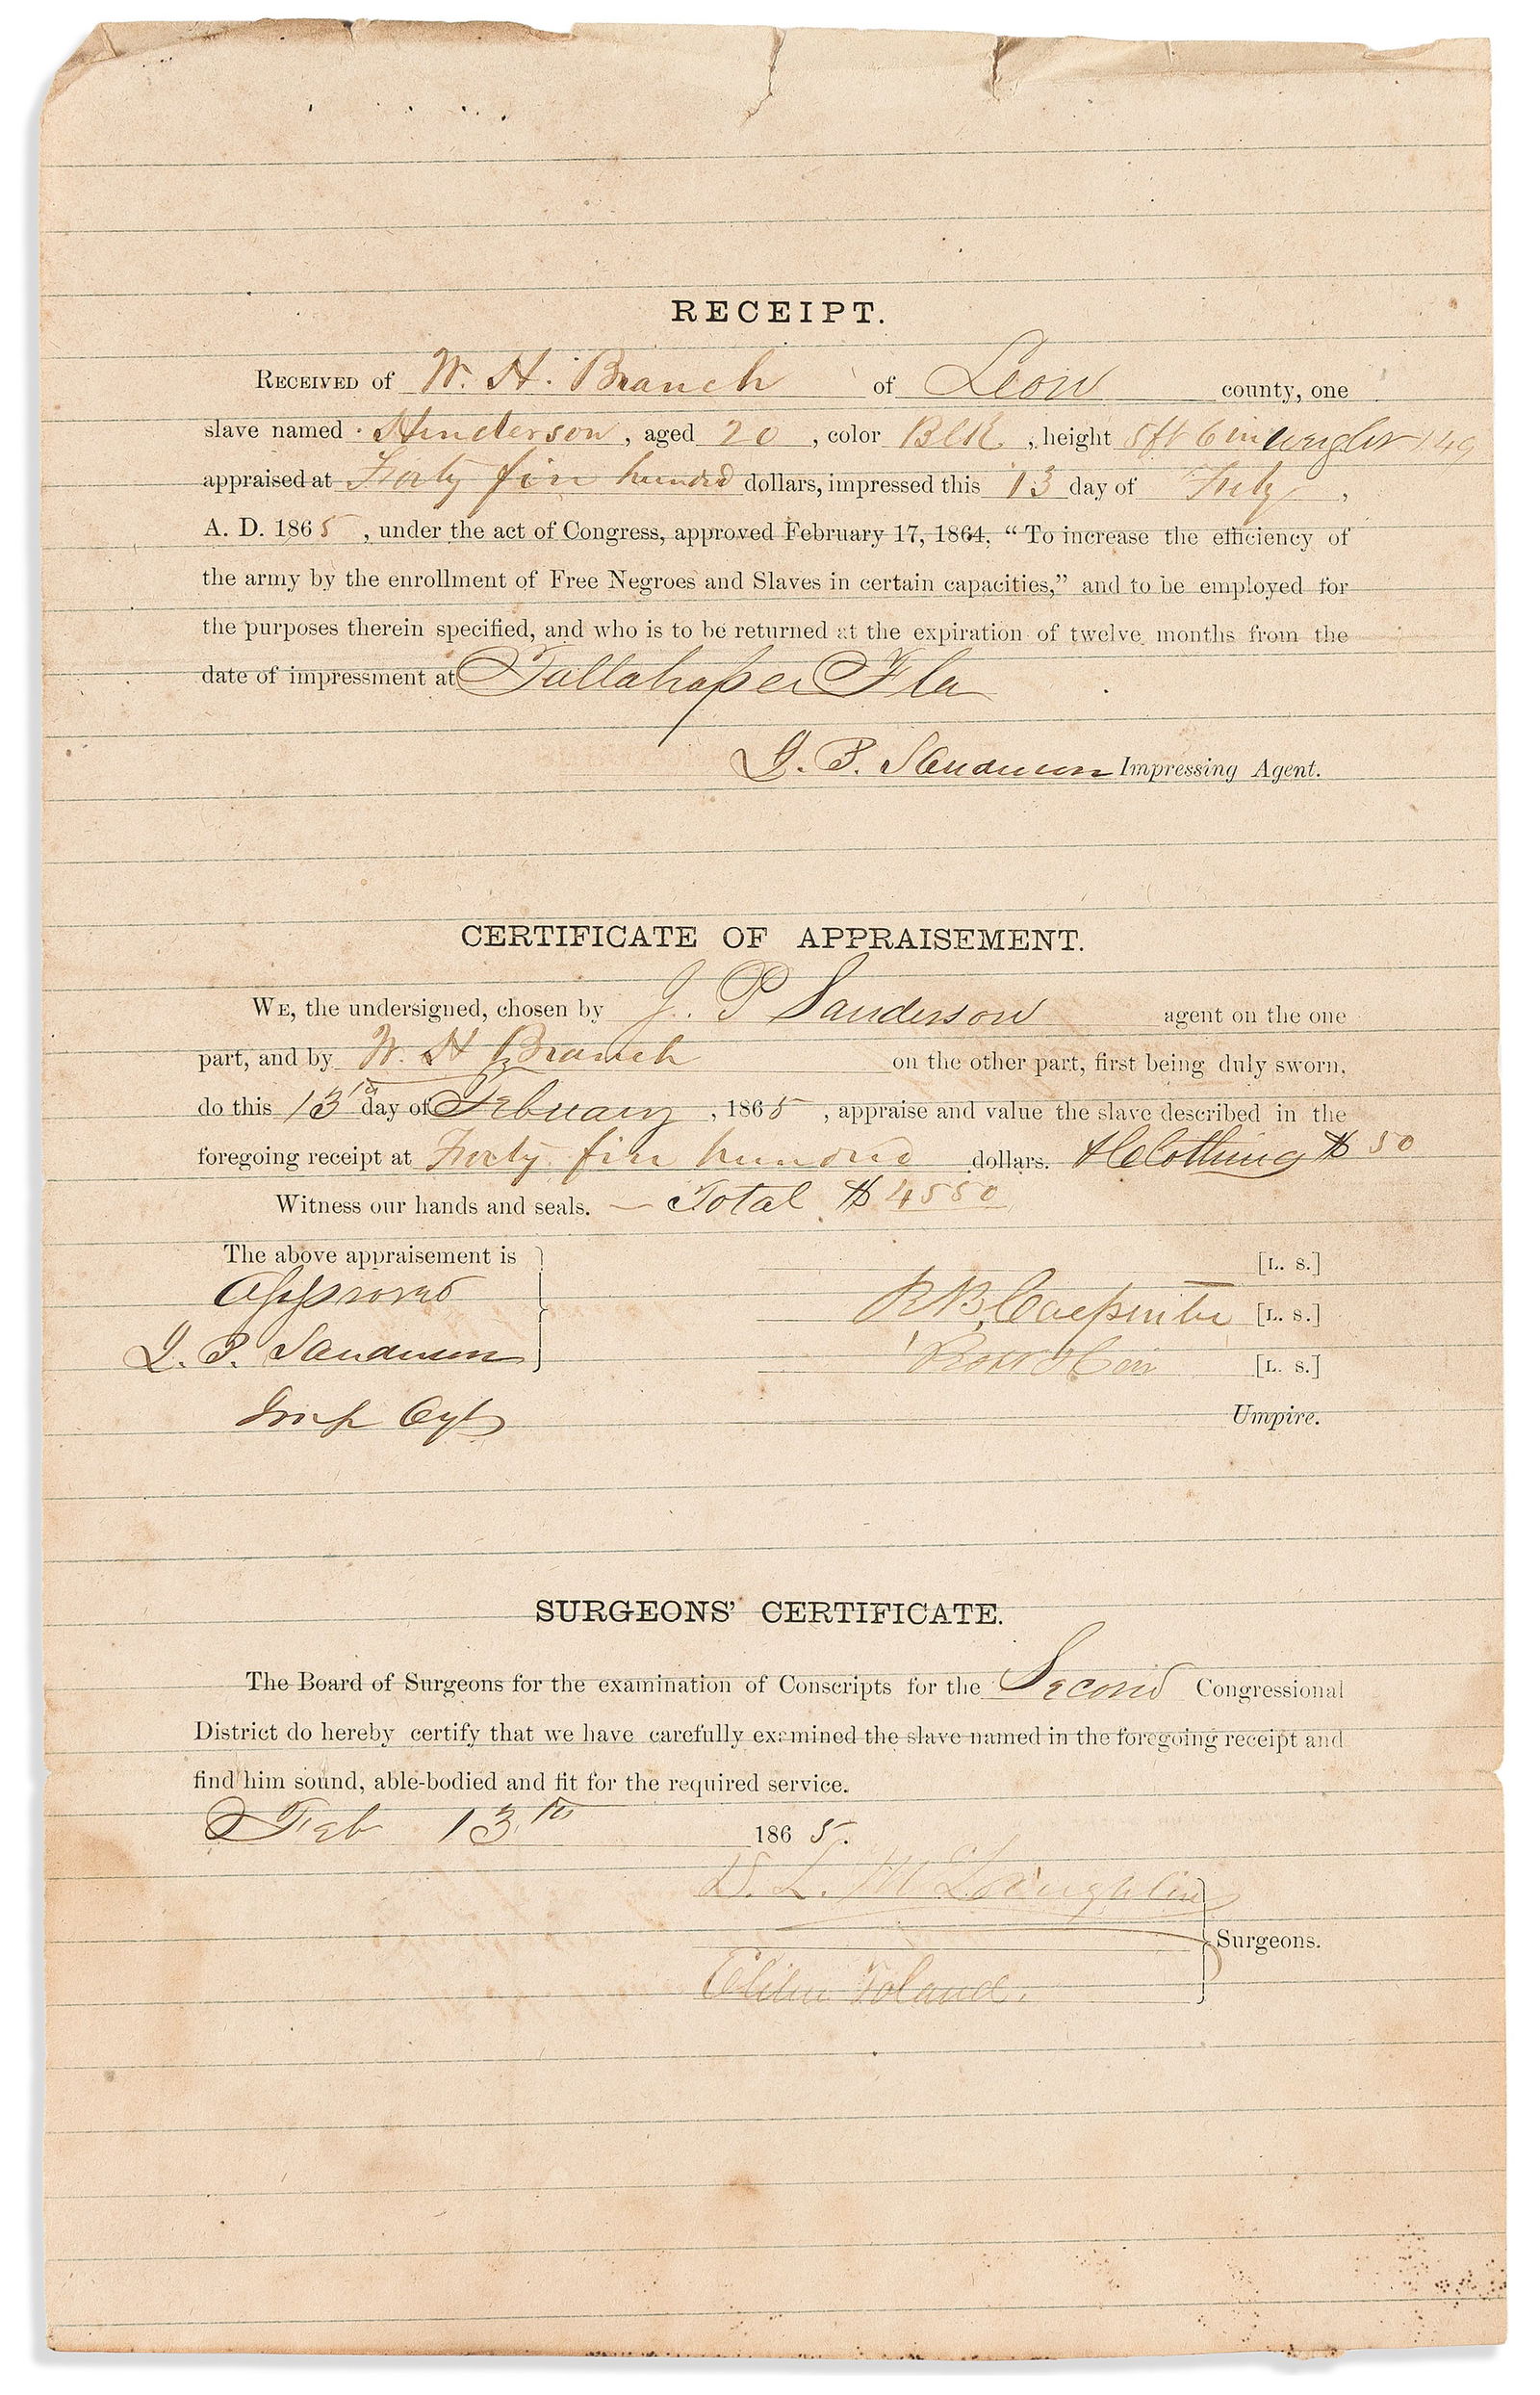 RECEIPT.
RECEIVED of W. H. Branch of Leon county, one
slave named Henderson, aged 20, color Blk, height 5ft 6in weight 149
appraised at Forty five hundred dollars, impressed this 13 day of Feby,
A. D. 1865, under the act of Congress, approved February 17, 1864, “To increase the efficiency of
the army by the enrollment of Free Negroes and Slaves in certain capacities,” and to be employed for
the purposes therein specified, and who is to be returned at the expiration of twelve months from the
date of impressment at Tallahassee Fla
J. P. Sanderson Impressing Agent.
CERTIFICATE OF APPRAISEMENT.
WE, the undersigned, chosen by J. P Sanderson agent on the one
part, and by W. H Branch on the other part, first being duly sworn,
do this 13th day of February, 1865, appraise and value the slave described in the
foregoing receipt at Forty five hundred dollars. & Clothing $50
Witness our hands and seals. — Total $4550
The above appraisement is [L. S.]
Approved
R B, Carpenter [L. S.]
J. P. Sanderson
[L. S.]
Imp Agt
Umpire.
SURGEONS’ CERTIFICATE.
The Board of Surgeons for the examination of Conscripts for the Second Congressional
District do hereby certify that we have carefully examined the slave named in the foregoing receipt and
find him sound, able-bodied and fit for the required service.
Feb 13th 1865.
D. L. McLoughlin
Surgeons.
Elihu Toland.